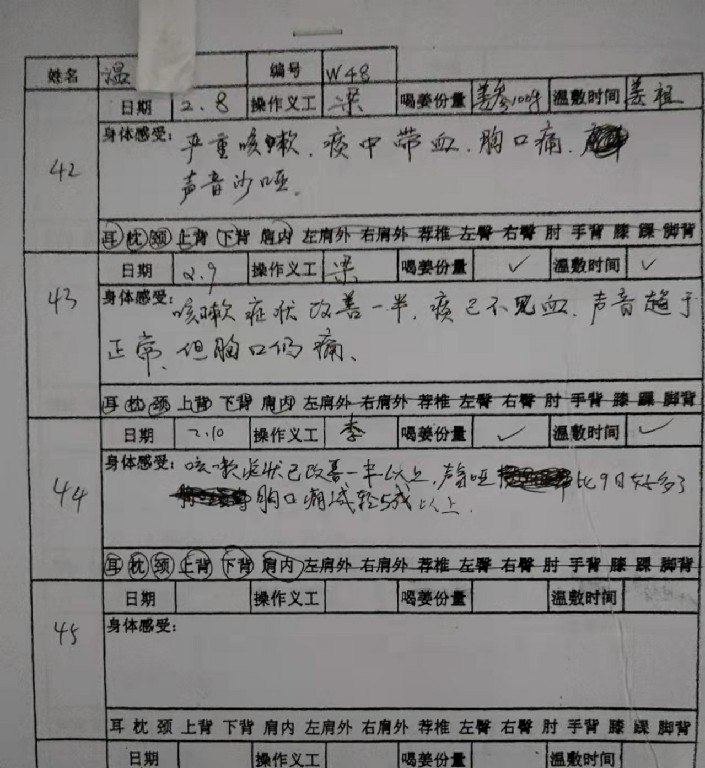 姓名 温 编号 W48
日期 2.8 操作义工 梁 喝姜份量 温敷时间 姜祖
42
身体感受: 严重咳嗽.痰中带血.胸口痛.
声音沙哑.
耳 枕 颈 上背 下背 肩内 左肩外 右肩外 荐椎 左臀 右臀 肘 手背 膝 踝 脚背
日期 2.9 操作义工 梁 喝姜份量 ✓ 温敷时间 ✓
43
身体感受: 咳嗽症状改善一半.痰已不见血.声音趋于
正常、但胸口仍痛、
耳 枕 颈 上背 下背 肩内 左肩外 右肩外 荐椎 左臀 右臀 肘 手背 膝 踝 脚背
日期 2.10 操作义工 李 喝姜份量 ✓ 温敷时间 ✓
44
身体感受: 咳嗽症状已改善一半以上,声音哑 比9日好多了
胸口痛减轻5成以上.
耳 枕 颈 上背 下背 肩内 左肩外 右肩外 荐椎 左臀 右臀 肘 手背 膝 踝 脚背
日期 操作义工 喝姜份量 温敷时间
45
身体感受:
耳 枕 颈 上背 下背 肩内 左肩外 右肩外 荐椎 左臀 右臀 肘 手背 膝 踝 脚背
日期 操作义工 喝姜份量 温敷时间